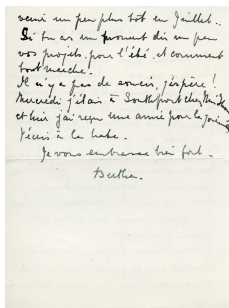 venir un peu plus tôt en Juillet..
Si tu as un moment dis un peu
vos projets pour l'été, et comment
tout marche.
Il n'y a pas de soucis, j'espère!
Mercredi j'étais à Southport chez
et hier j'ai reçu une amie pour la journée
J'écris à la hâte.
Je vous embrasse bien fort.
Bertha.